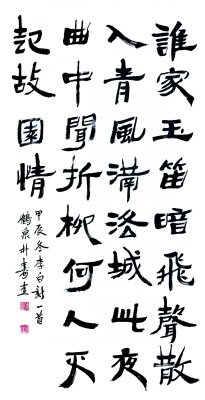 誰家玉笛暗飛聲散
入青風滿洛城此夜
曲中聞折柳何人不
起故園情
甲辰冬李白詩一首
鶴泉